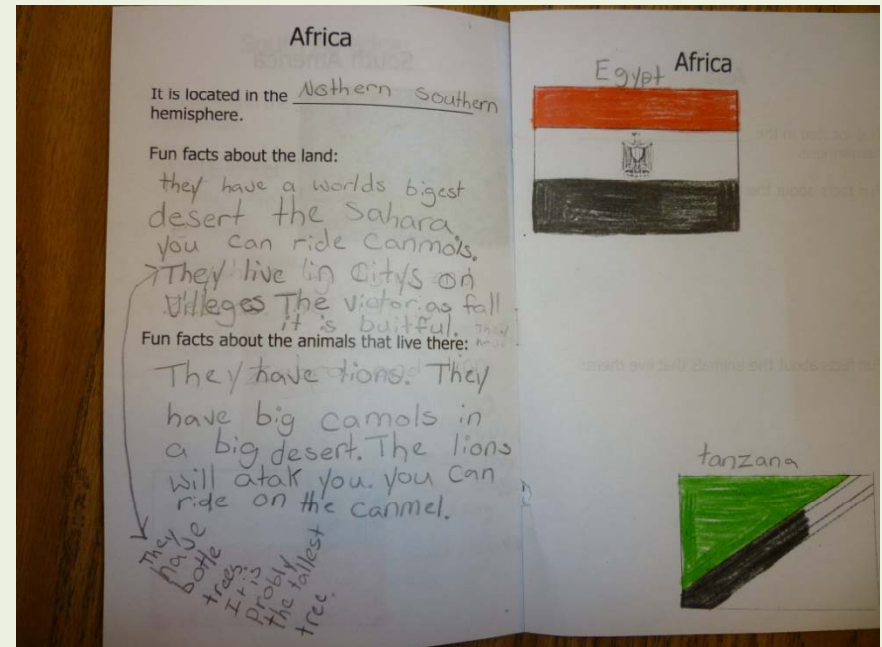 Africa
It is located in the Nothern Southern
hemisphere.
Fun facts about the land:
they have a worlds bigest
desert the Sahara
you can ride Canmols.
They live in Citys on
Villeges The victor.as fall
it is buitful. They
have
Fun facts about the animals that live there:
They have lions. They
have big camols in
a big desert. The lions
will atak you. you can
ride on the canmel.
They
have
botle
trees.
It is
Probly
the tallest
tree.
Africa
Egypt
tanzana